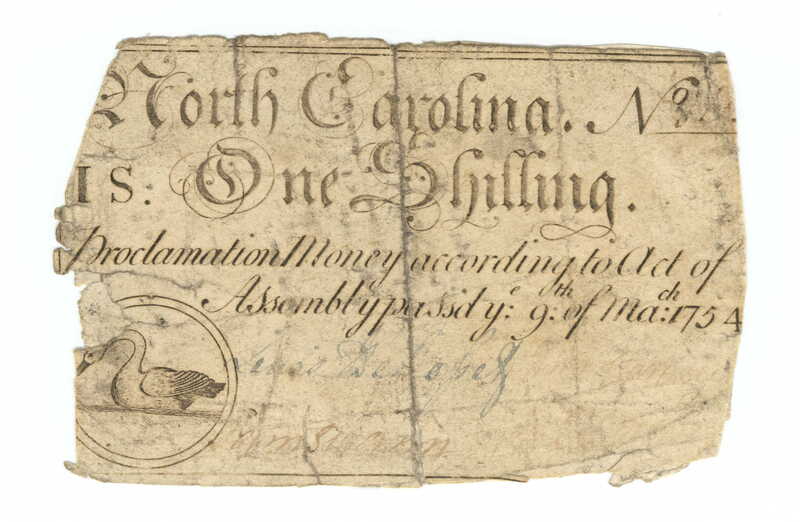 North Carolina. No
1 S: One Shilling.
Proclamation Money according to Act of
Assembly pass'd ye: 9:th of Mach: 1754